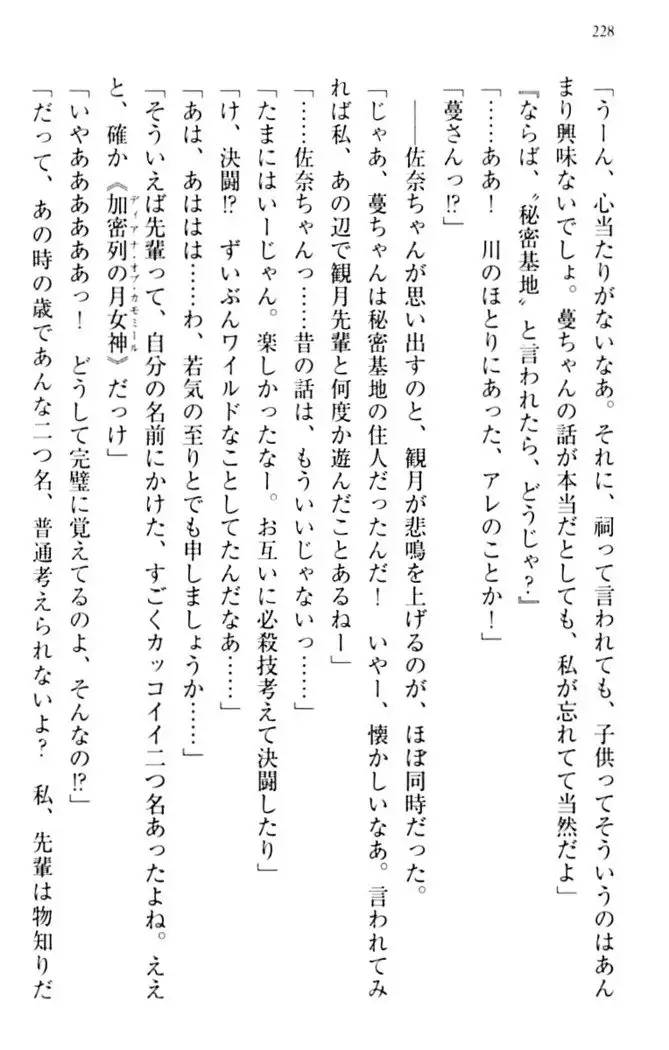 228
「うーん、心当たりがないなぁ。それに、祠って言われても、子供ってそういうのはあん
まり興味ないでしょ。蔓ちゃんの話が本当だとしても、私が忘れてて当然だよ」
『ならば、〝秘密基地〟と言われたら、どうじゃ?』
「……ああ! 川のほとりにあった、アレのことか!」
「蔓さんっ!?」
――佐奈ちゃんが思い出すのと、観月が悲鳴を上げるのが、ほぼ同時だった。
「じゃあ、蔓ちゃんは秘密基地の住人だったんだ! いやー、懐かしいなぁ。言われてみ
れば私、あの辺で観月先輩と何度か遊んだことあるねー」
「……佐奈ちゃんっ……昔の話は、もういいじゃないっ……」
「たまにはいーじゃん。楽しかったなー。お互いに必殺技考えて決闘したり」
「け、決闘!? ずいぶんワイルドなことしてたんだなぁ……」
「あは、あははは……わ、若気の至りとでも申しましょうか……」
「そういえば先輩って、自分の名前にかけた、すごくカッコイイ二つ名あったよね。ええ
と、確か《加密列の月女神》だっけ」
ディアナ・オブ・カモミール
「いやああああああっ! どうして完璧に覚えてるのよ、そんなの!?」
「だって、あの時の歳であんな二つ名、普通考えられないよ? 私、先輩は物知りだ